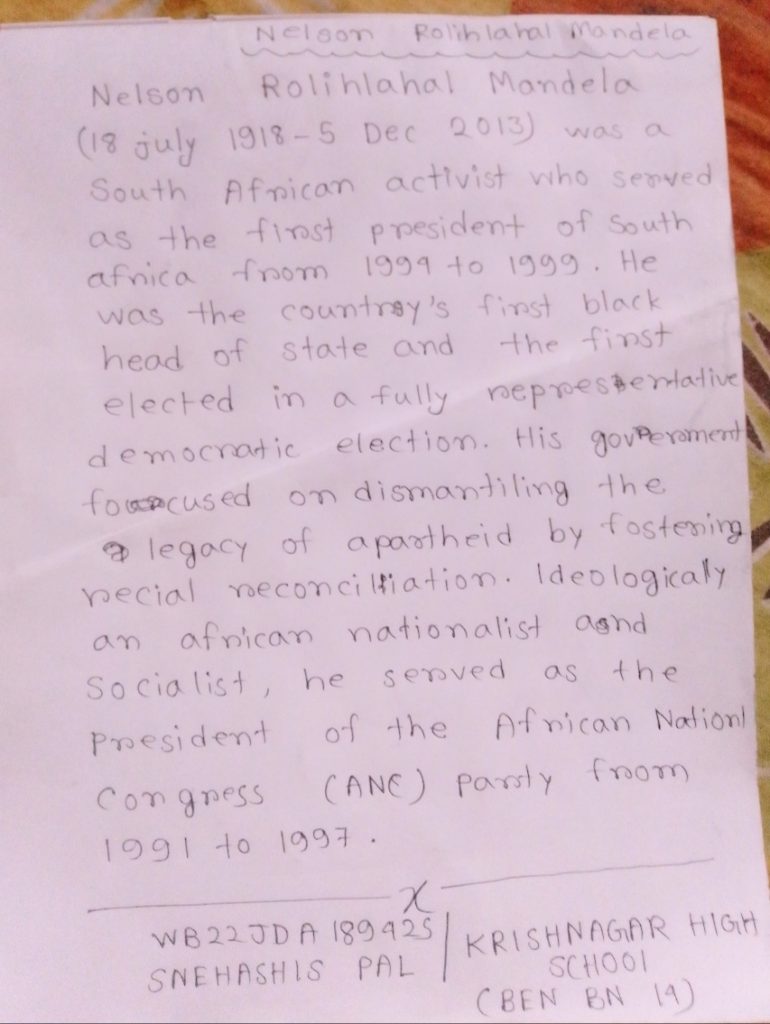 Nelson Rolihlahal Mandela
Nelson Rolihlahal Mandela
(18 july 1918-5 Dec 2013) was a
South African activist who served
as the first president of South
africa from 1994 to 1999. He
was the country's first black
head of state and the first
elected in a fully representative
democratic election. His government
foucused on dismantiling the
legacy of apartheid by fostering
recial reconciliation. Ideologically
an african nationalist and
Socialist, he served as the
President of the African Nationl
Congress (ANC) party from
1991 to 1997.
X
WB22JDA189425 / KRISHNAGAR HIGH
SNEHASHIS PAL SCHOOl
(BEN BN 14)